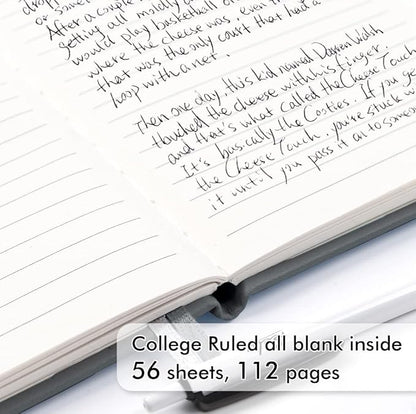 or some
After a couple
getting all mildly
would play basketball o
where the cheese was, even th
that was the only court that had a
hoop with a net.
Then one day, this kid named Darren Walsh
touched the cheese with his finger,
and that's what called the Cheese Touch
It's basically the Cooties. If you ge
the Cheese Touch, you're stuck w
it until you pass it on to some
College Ruled all blank inside
56 sheets, 112 pages